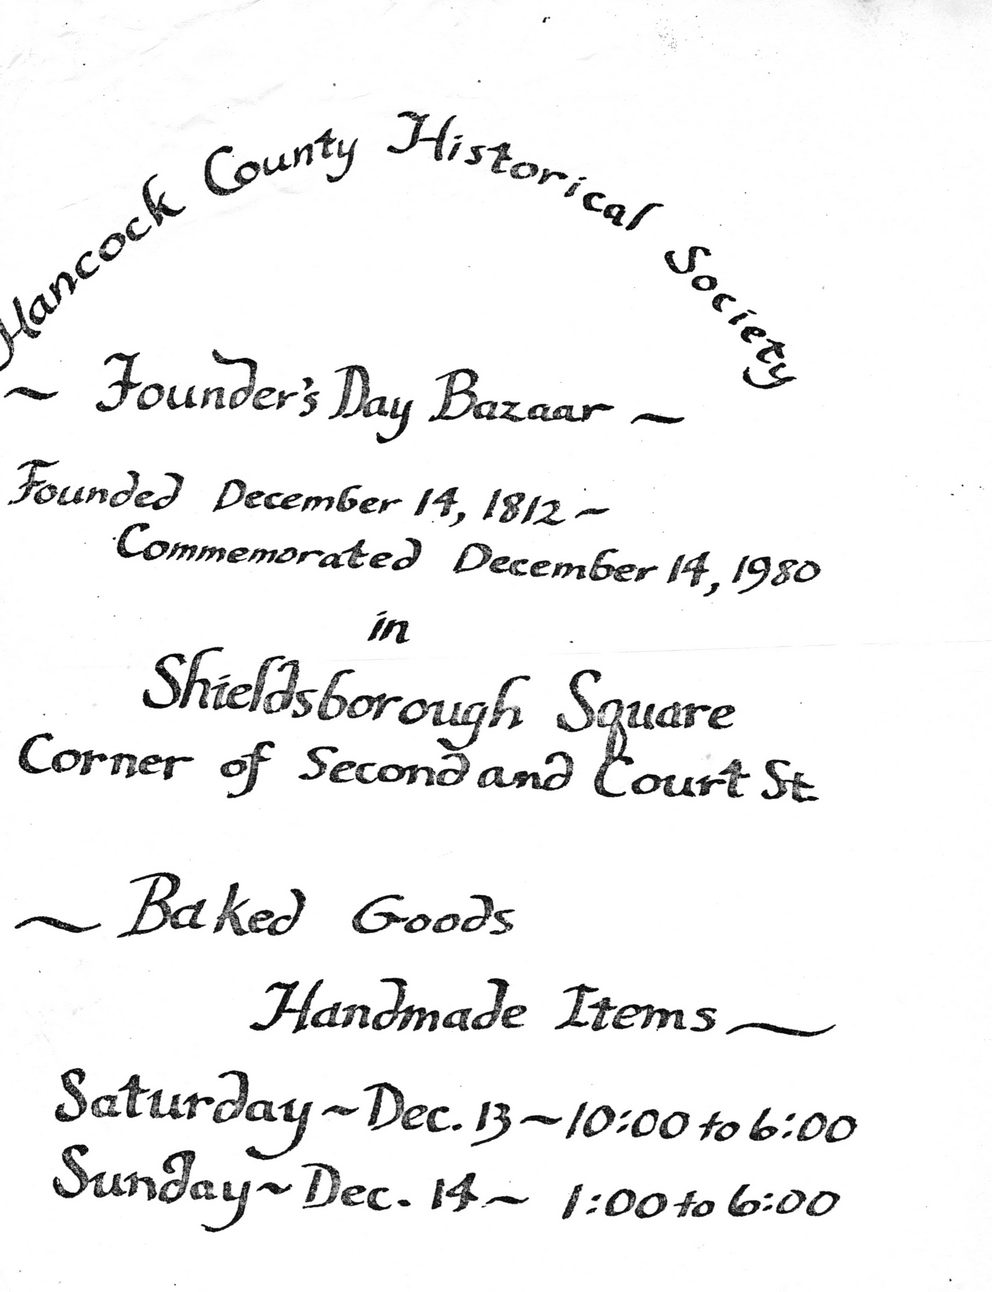 Hancock County Historical Society
~ Founder's Day Bazaar ~
Founded December 14, 1812 ~
Commemorated December 14, 1980
in
Shieldsborough Square
Corner of Second and Court St
~ Baked Goods
Handmade Items ~
Saturday ~ Dec. 13 ~ 10:00 to 6:00
Sunday ~ Dec. 14 ~ 1:00 to 6:00